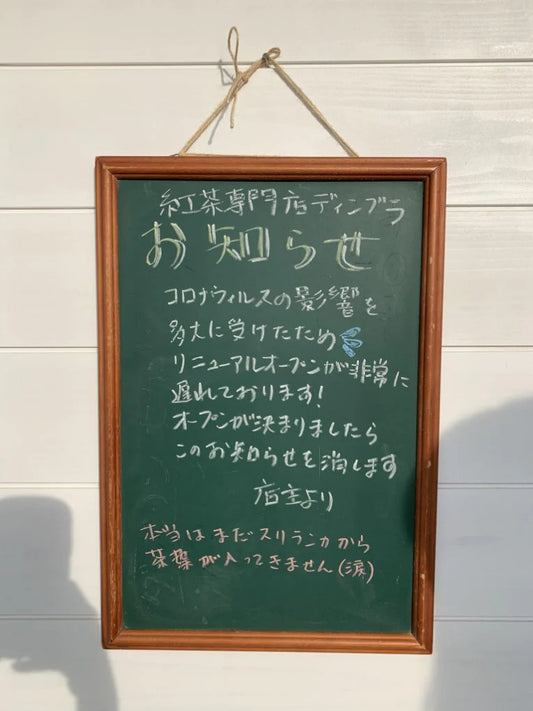 紅茶専門店ディンブラ
お知らせ
コロナウィルスの影響を
多大に受けたため
リニューアルオープンが非常に
遅れております!
オープンが決まりましたら
このお知らせを消します
店主より
本当はまだスリランカから
茶葉が入ってきません(涙)